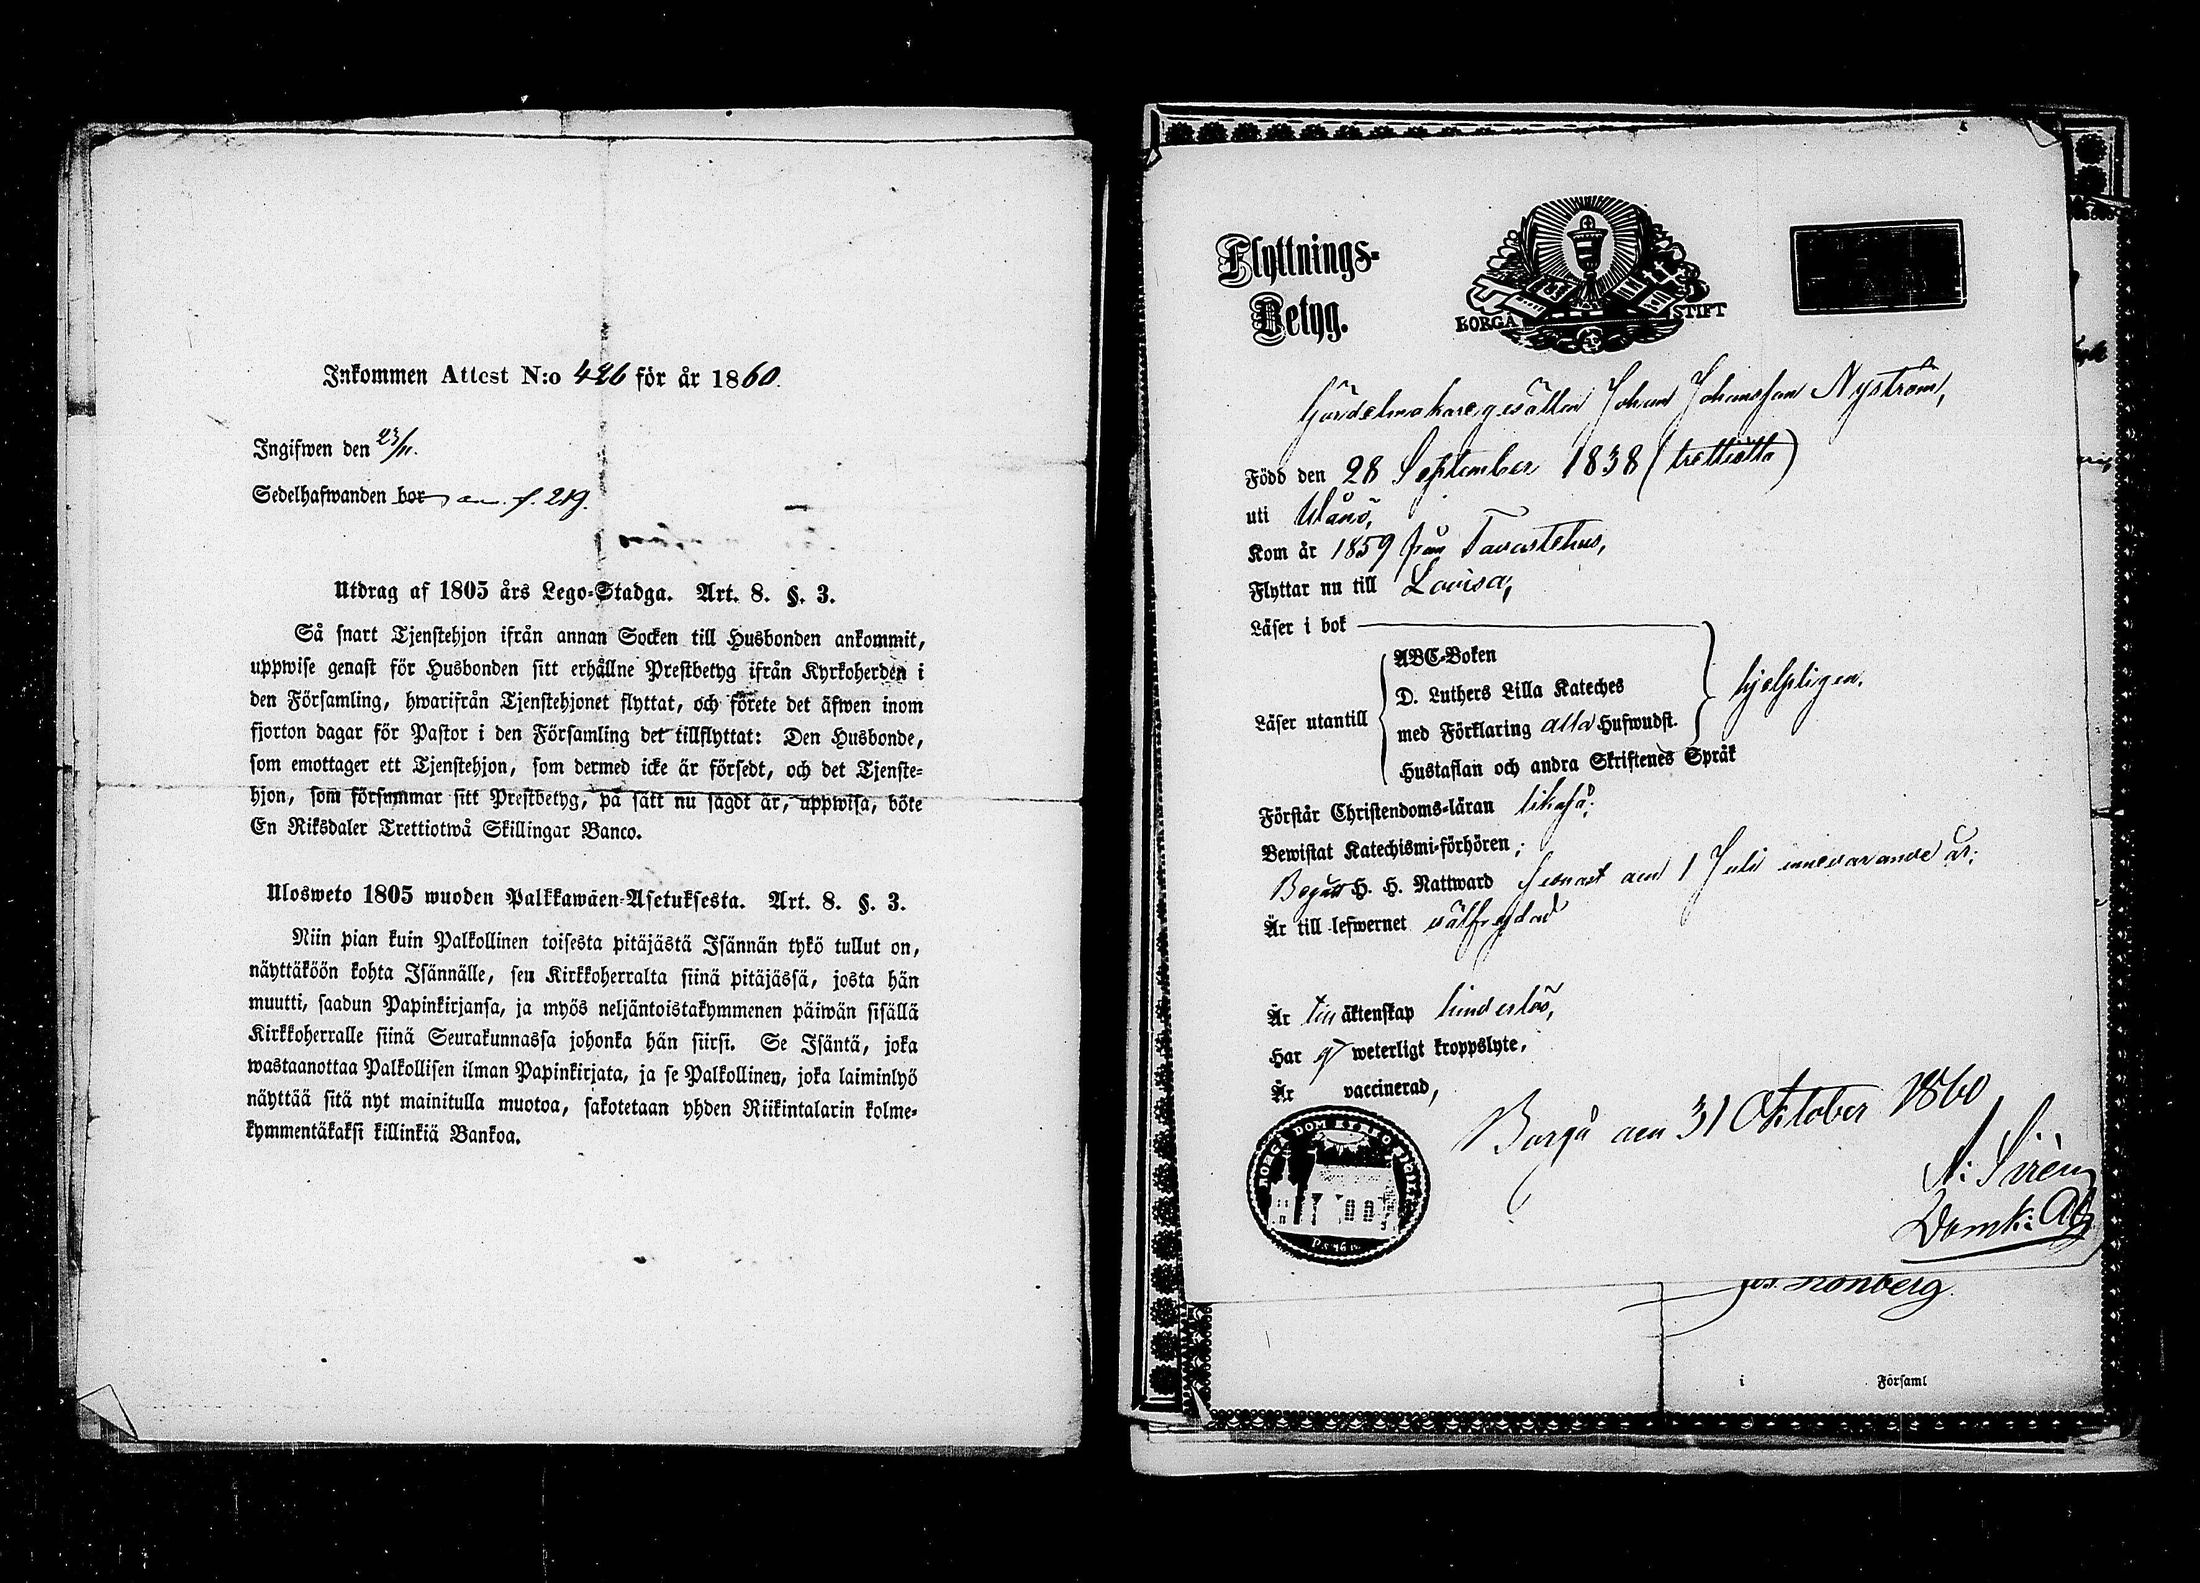 Inkommen Attest N:o 426 för år 1860.
Ingifwen den 23/11.
Sedelhafwanden bor an. f. 219.
Utdrag af 1805 års Lego-Stadga. Art. 8. §. 3.
Så snart Tjenstehjon ifrån annan Socken till Husbonden ankommit,
uppwise genast för Husbonden sitt erhållne Prestbetyg ifrån Kyrkoherden i
den Församling, hwarifrån Tjenstehjonet flyttat, och förete det äfwen inom
fjorton dagar för Pastor i den Församling det tillflyttat: Den Husbonde,
som emottager ett Tjenstehjon, som dermed icke är försedt, och det Tjenste-
hjon, som försummar sitt Prestbetyg, på sätt nu sagdt är, uppwisa, böte
En Riksdaler Trettiotwå Skillingar Banco.
Ulosweto 1805 wuoden Palkkawäen-Asetuksesta. Art. 8. §. 3.
Niin pian kuin Palkollinen toisesta pitäjästä Isännän tykö tullut on,
näyttäköön kohta Isännälle, sen Kirkkoherralta siinä pitäjässä, josta hän
muutti, saadun Papinkirjansa, ja myös neljäntoistakymmenen päiwän sisällä
Kirkkoherralle siinä Seurakunnassa johonka hän siirsi. Se Isäntä, joka
wastaanottaa Palkollisen ilman Papinkirjata, ja se Palkollinen, joka laiminlyö
näyttää sitä nyt mainitulla muotoa, sakotetaan yhden Riikintalarin kolme-
kymmentäkaksi killinkiä Bankoa.
Flyttnings-
Betyg.
BORGÅ STIFT
Gördelmakaregesällen Johan Johansson Nyström,
Född den 28 September 1838 (trettiotta)
uti Wånå,
Kom år 1859 från Tavastehus,
Flyttar nu till Lovisa,
Läser i bok
ABC-Boken
D. Luthers Lilla Kateches
Läser utantill med Förklaring alla Hufwudst. hjelpligen.
Hustaflan och andra Skriftenes Språk
Förstår Christendoms-läran likaså;
Bewistat Katechismi-förhören;
Begått H. H. Nattward senast den 1 Juli innevarande år;
Är till lefwernet välfrejdad
Är till äktenskap hinderlös,
Har ej weterligt kroppslyte,
Är vaccinerad,
Borgå den 31 Oktober 1860
BORGÅ DOMKYRKO
A: Sirén
Domk: Adj
i Församl